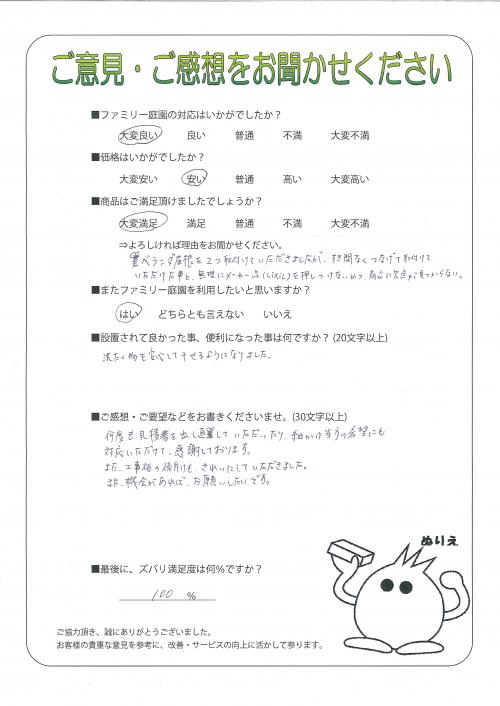 ご意見・ご感想をお聞かせください
■ファミリー庭園の対応はいかがでしたか？
大変良い 良い 普通 不満 大変不満
■価格はいかがでしたか？
大変安い 安い 普通 高い 大変高い
■商品はご満足頂けましたでしょうか？
大変満足 満足 普通 不満 大変不満
⇒よろしければ理由をお聞かせください。
ベランダ屋根を2つ取付けていただきましたが、すき間なくつなげて取付けて
いただけた事と、無理にメーカー品(LIXIL)を押しつけないかつ商品に欠点が見つからない。
■またファミリー庭園を利用したいと思いますか？
はい どちらとも言えない いいえ
■設置されて良かった事、便利になった事は何ですか？(20文字以上)
洗たく物を安心して干せるようになりました。
■ご感想・ご要望などをお書きくださいませ。(30文字以上)
何度も見積書を出し直していただいたり、細かい当方の希望にも
対応いただけて、感謝しております。
また、工事後の後片付けも、きれいにしていただきました。
また、機会があれば、お願いしたいです。
ぬりえ
■最後に、ズバリ満足度は何％ですか？
100 %
ご協力頂き、誠にありがとうございました。
お客様の貴重な意見を参考に、改善・サービスの向上に活かして参ります。